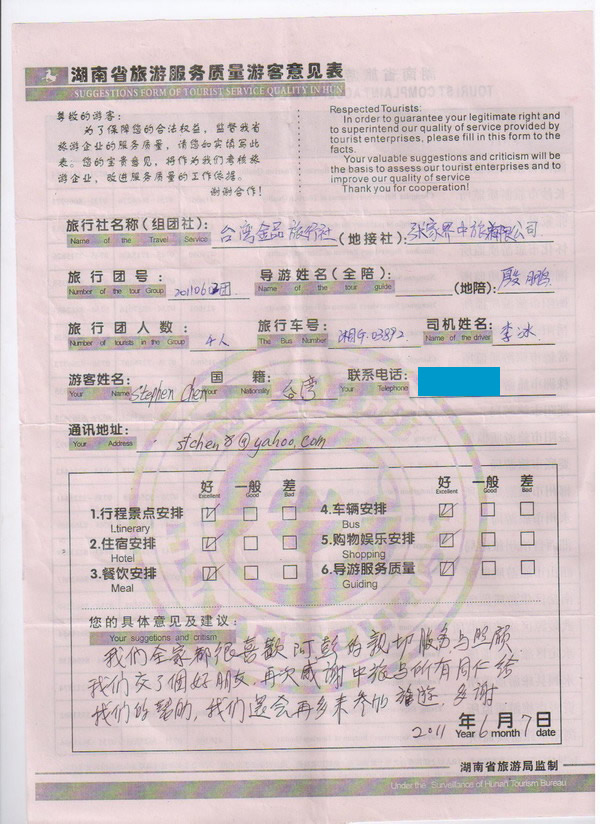 湖南省旅游服务质量游客意见表
SUGGESTIONS FORM OF TOURIST SERVICE QUALITY IN HUN
尊敬的游客:
为了保障您的合法权益,监督我省
旅游企业的服务质量,请您如实填写此
表。您的宝贵意见,将作为我们考核旅
游企业,改进服务质量的工作依据。
谢谢合作!
Respected Tourists:
In order to guarantee your legitimate right and
to superintend our quality of service provided by
tourist enterprises, please fill in this form to the
facts.
Your valuable suggestions and criticism will be
the basis to assess our tourist enterprises and to
improve our quality of service
Thank you for cooperation!
旅行社名称(组团社): 台湾金品旅行社 (地接社): 张家界中旅有限公司
Name of the Travel Service
旅行团号: 导游姓名(全陪): (地陪): 殷鹏
Number of the tour Group Name of the tour guide
旅行团人数: 4人 旅行车号: 湘G.03892 司机姓名: 李冰
Number of tourists in the Group The Bus Number Name of the driver
游客姓名: Stephen Chen 国籍: 台湾 联系电话:
Your Name Your Nationality Your Telephone
通讯地址: stchen8@yahoo.com
Your Address
好 一般 差 好 一般 差
Excellent Good Bad Excellent Good Bad
1.行程景点安排 4.车辆安排
I.tinerary Bus
2.住宿安排 5.购物娱乐安排
Hotel Shopping
3.餐饮安排 6.导游服务质量
Meal Guiding
您的具体意见及建议:
Your suggetions and critism
我们全家都很喜歡阿彭的親切服务与照顧.
我们交了個好朋友.再次感谢中旅与所有同仁给
我们的幫助,我们還会再多来参加旅遊.多谢.
2011 年 6 月 7 日
Year month date
湖南省旅游局监制
Under the Surveillance of Hunan Tourism Bureau